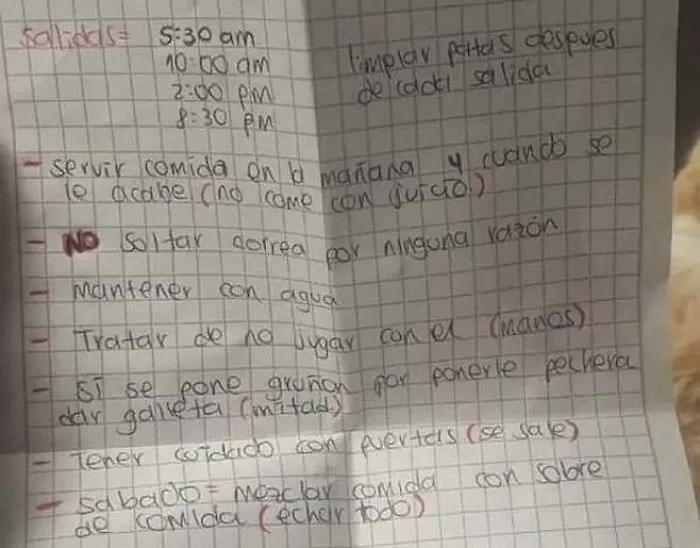 Salidas = 5:30 am
10:00 am
2:00 pm
8:30 pm
limpiar patas despues
de cada salida
- servir comida en la mañana y cuando se
le acabe (no come con juicio)
- NO soltar correa por ninguna razón
- mantener con agua
- Tratar de no jugar con el (manos)
- Si se pone gruñon por ponerle pechera
dar galleta (mitad)
- Tener cuidado con puertas (se sale)
- sabado = mezclar comida con sobre
de comida (echar todo)